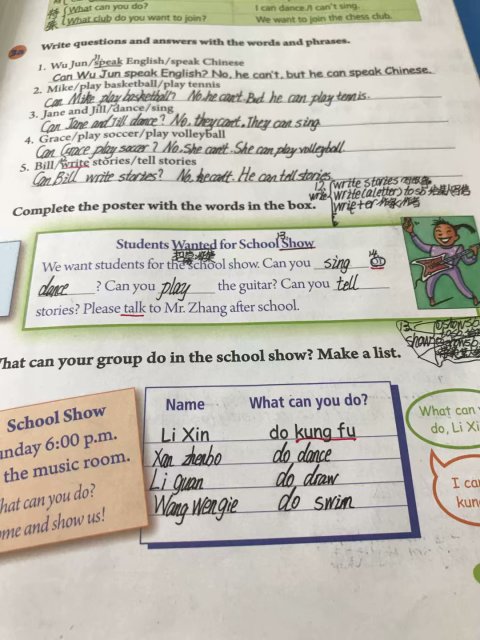 What can you do?
I can dance./I can't sing.
What club do you want to join?
We want to join the chess club.
3a
Write questions and answers with the words and phrases.
1. Wu Jun/speak English/speak Chinese
Can Wu Jun speak English? No, he can't, but he can speak Chinese.
2. Mike/play basketball/play tennis
Can Mike play basketball? No. he can't. But he can play tennis.
3. Jane and Jill/dance/sing
Can Jane and Jill dance? No. they can't. They can sing
4. Grace/play soccer/play volleyball
Can Grace play soccer? No. She can't. She can play volleyball
5. Bill/write stories/tell stories
Can Bill write stories? No, he can't. He can tell stories.
12.
write
write stories
write (a letter) to sb
writer
Complete the poster with the words in the box.
13
Students Wanted for School Show
We want students for the school show. Can you sing or
dance ? Can you play the guitar? Can you tell
stories? Please talk to Mr. Zhang after school.
13
show
What can your group do in the school show? Make a list.
School Show
unday 6:00 p.m.
the music room.
hat can you do?
ome and show us!
Name What can you do?
Li Xin do kung fu
Xan zhenbo do dance
Li guan do draw
Wang Wengie do swim
What can
do, Li Xi
I ca
kun